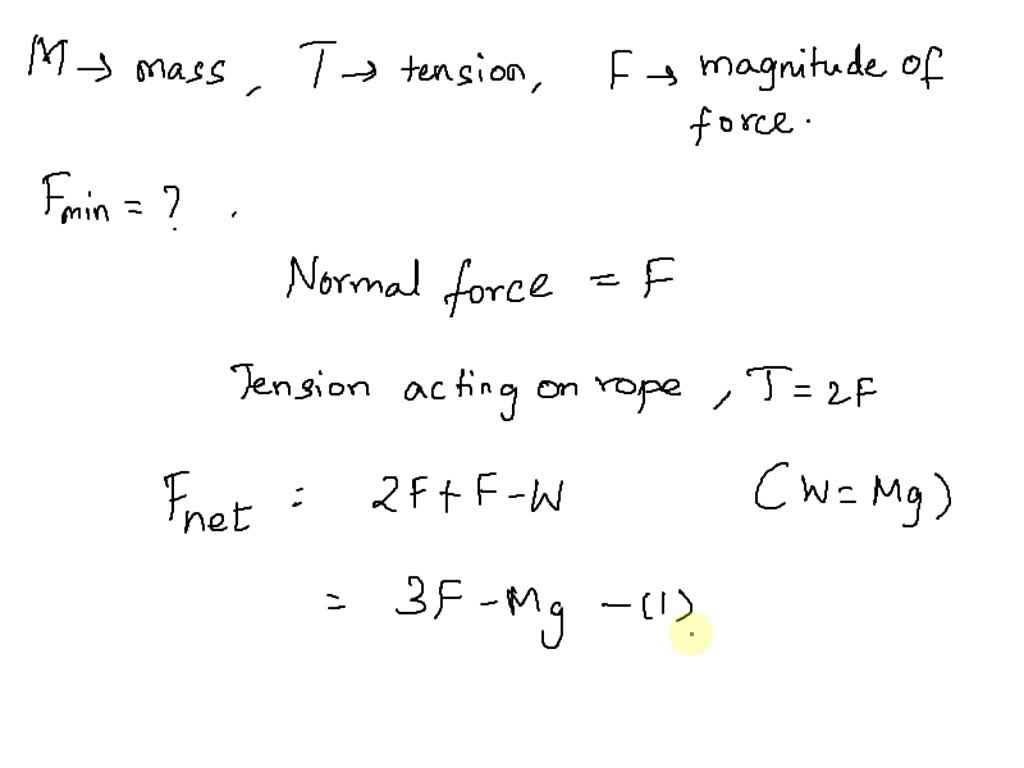 M → mass, T → tension, F → magnitude of
force.
Fmin = ? .
Normal force = F
Tension acting on rope, T = 2F
Fnet = 2F + F - W (W = Mg)
= 3F - Mg - (1)